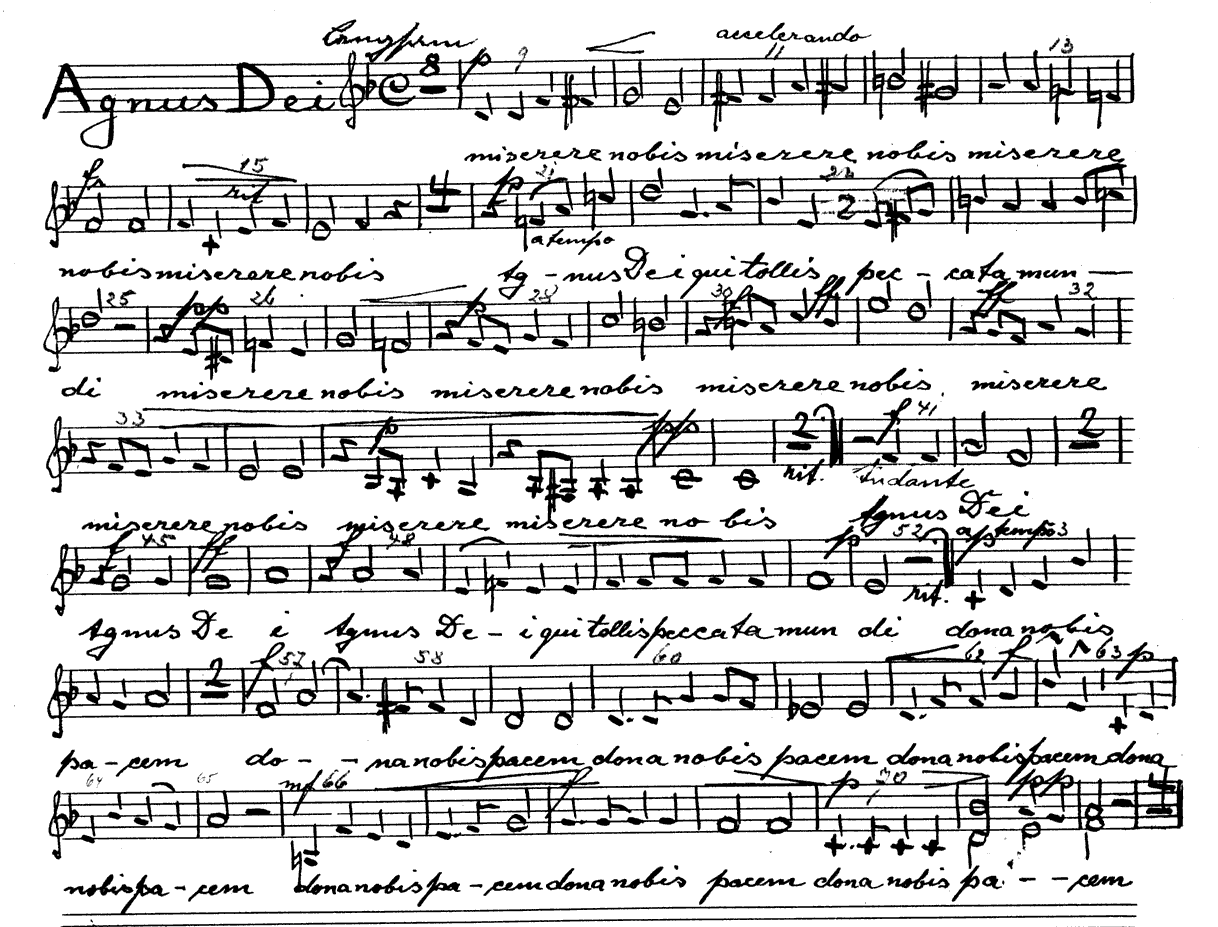 Langsam accelerando
Agnus Dei 8 p 9 11 13
miserere nobis miserere nobis miserere
f 15 rit 4 p 21 a tempo 2
nobis miserere nobis Ag - nus Dei qui tollis pec - cata mun -
25 pp 26 p 28 30 f ff ff 32
di miserere nobis miserere nobis miserere nobis, miserere
33 p pp 2 rit. f 41 Andante 2
miserere nobis miserere miserere no bis Agnus Dei
f 45 ff f 48 p 52 rit. a tempo 53 p
Agnus De i Agnus De - i qui tollis peccata mun di dona nobis
2 f 57 58 60 62 f 63 p
pa - cem do - - na nobis pacem dona nobis pacem dona nobis pacem dona
64 65 mf 66 f p 70 pp 4
nobis pa - cem dona nobis pa - cem dona nobis pacem dona nobis pa - - cem